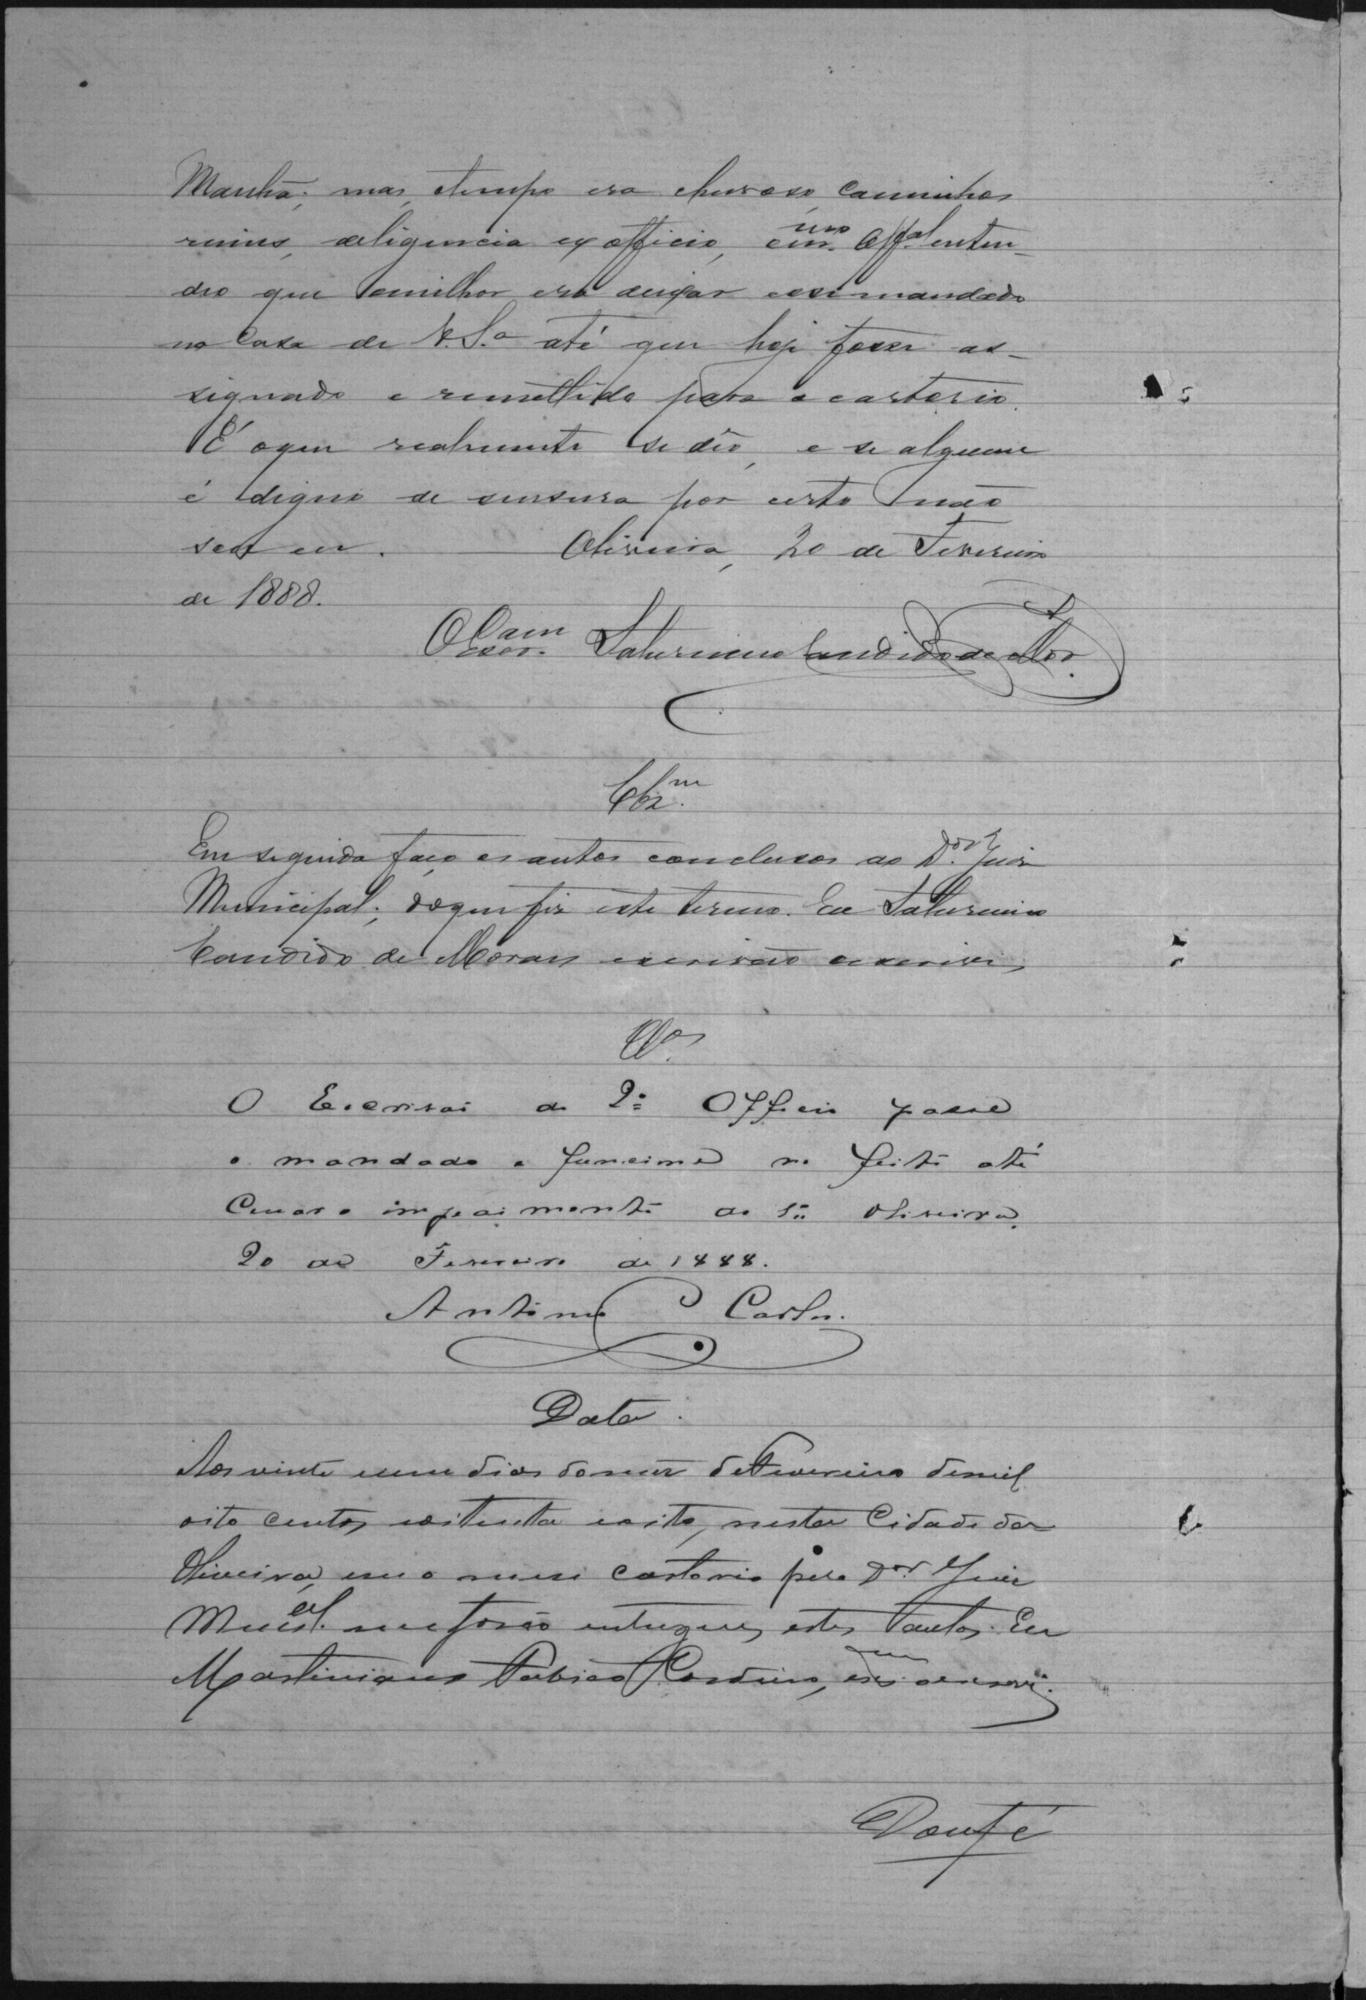 Manhã; mas, otempo era chuvoso, caminhos
ruins, deligencia ex officio, omo Offal enten-
deo que omilhor era deixar essemandado
na Casa de V. S.a até que hoje fosse as-
signado e remettido para o cartorio.
É oque realmente se dêo, e se alguem
é digno de sensura por certo não
sou eu. Oliveira, 20 de Fevereiro
de 1888.
O Escram Saturnino Candido de Mor.
Clzm.
Em seguida faço os autos conclusos ao Dor. Juiz
Municipal; doque fiz este termo. Eu Saturnino
Candido de Moraes escrivão o escrevi,
Clos
O Escrivão do 2º Officio passe
o mandado e funccione no feito até
cessar o impedimento do 1º Oliveira,
20 de Fevereiro de 1888.
Antonio Carlos.
Data.
Aos vinte eum dias domez deFevereiro demil
oito centos eoitenta eoito, nesta Cidade da
Oliveira, em o meu cartorio pelo Dor. Juiz
Mucal. meforão entregues estes autos. Eu
Martiniano Cordeiro, escm oescrevi.
Doufé